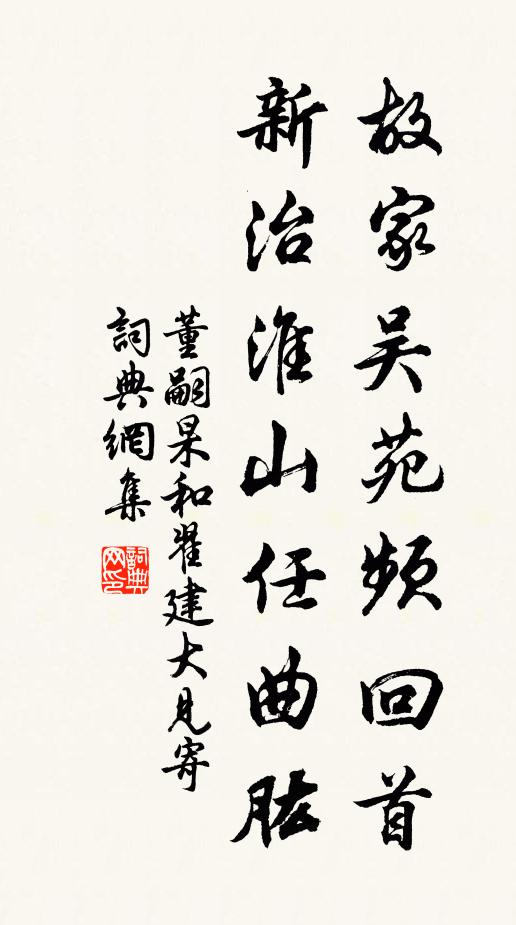 故家吴苑頻回首
新治淮山任曲肱
董嗣杲和翟建大見寄
詞典網集
詞典网印